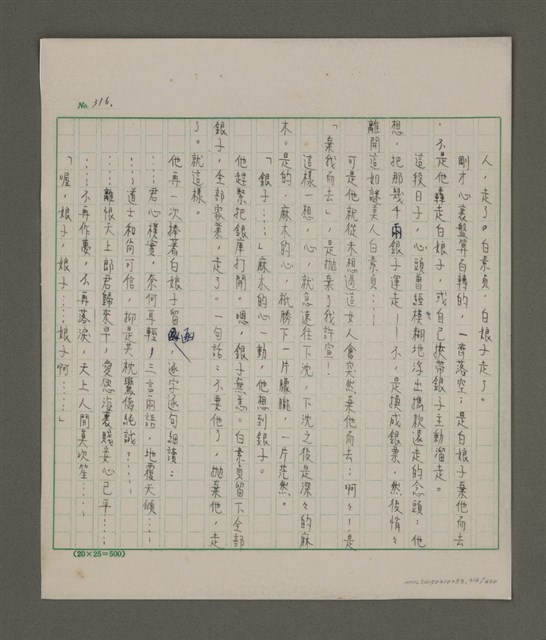 No. 316.
人，走了。白素貞，白娘子走了。
剛才心裏盤算百轉的，一齊落空；是白娘子棄他而去
，不是他轟走白娘子，或自己挾帶銀子主動溜走。
這段日子，心頭曾經模糊地浮出攜款遠走的念頭：他
想，把那幾千兩銀子運走——不，是換成銀票，然後悄々
離開這如謎美人白素貞……
可是他就從未想過這女人會突然棄他而去…啊々！是
「棄我而去」，是拋棄了我許宣！
這樣一想，心，就急速往下沈，下沈之後是深々的麻
木。是的，麻木的心，祇賸下一片朦朧，一片茫然。
「銀子……」麻木的心一動，他想到銀子。
他趕緊把銀庫打開。嗯，銀子無恙。白素貞留下全部
銀子，全部家業，走了。一句話：不要他了，拋棄他，走
了。就這樣。
他再一次捧著白娘子留函，逐字逐句細讀：
……君心樸實，奈何耳輕，三言兩語，地覆天傾……
…道士和尚可信，抑是共枕鴛儔純誠？……
……離恨天上郎君歸來早，愛恩海裏賠妾心已平……
……不再作夢，不再落淚，天上人間莫次笙……
「喔，娘子，娘子……娘子啊……」
(20×25=500)